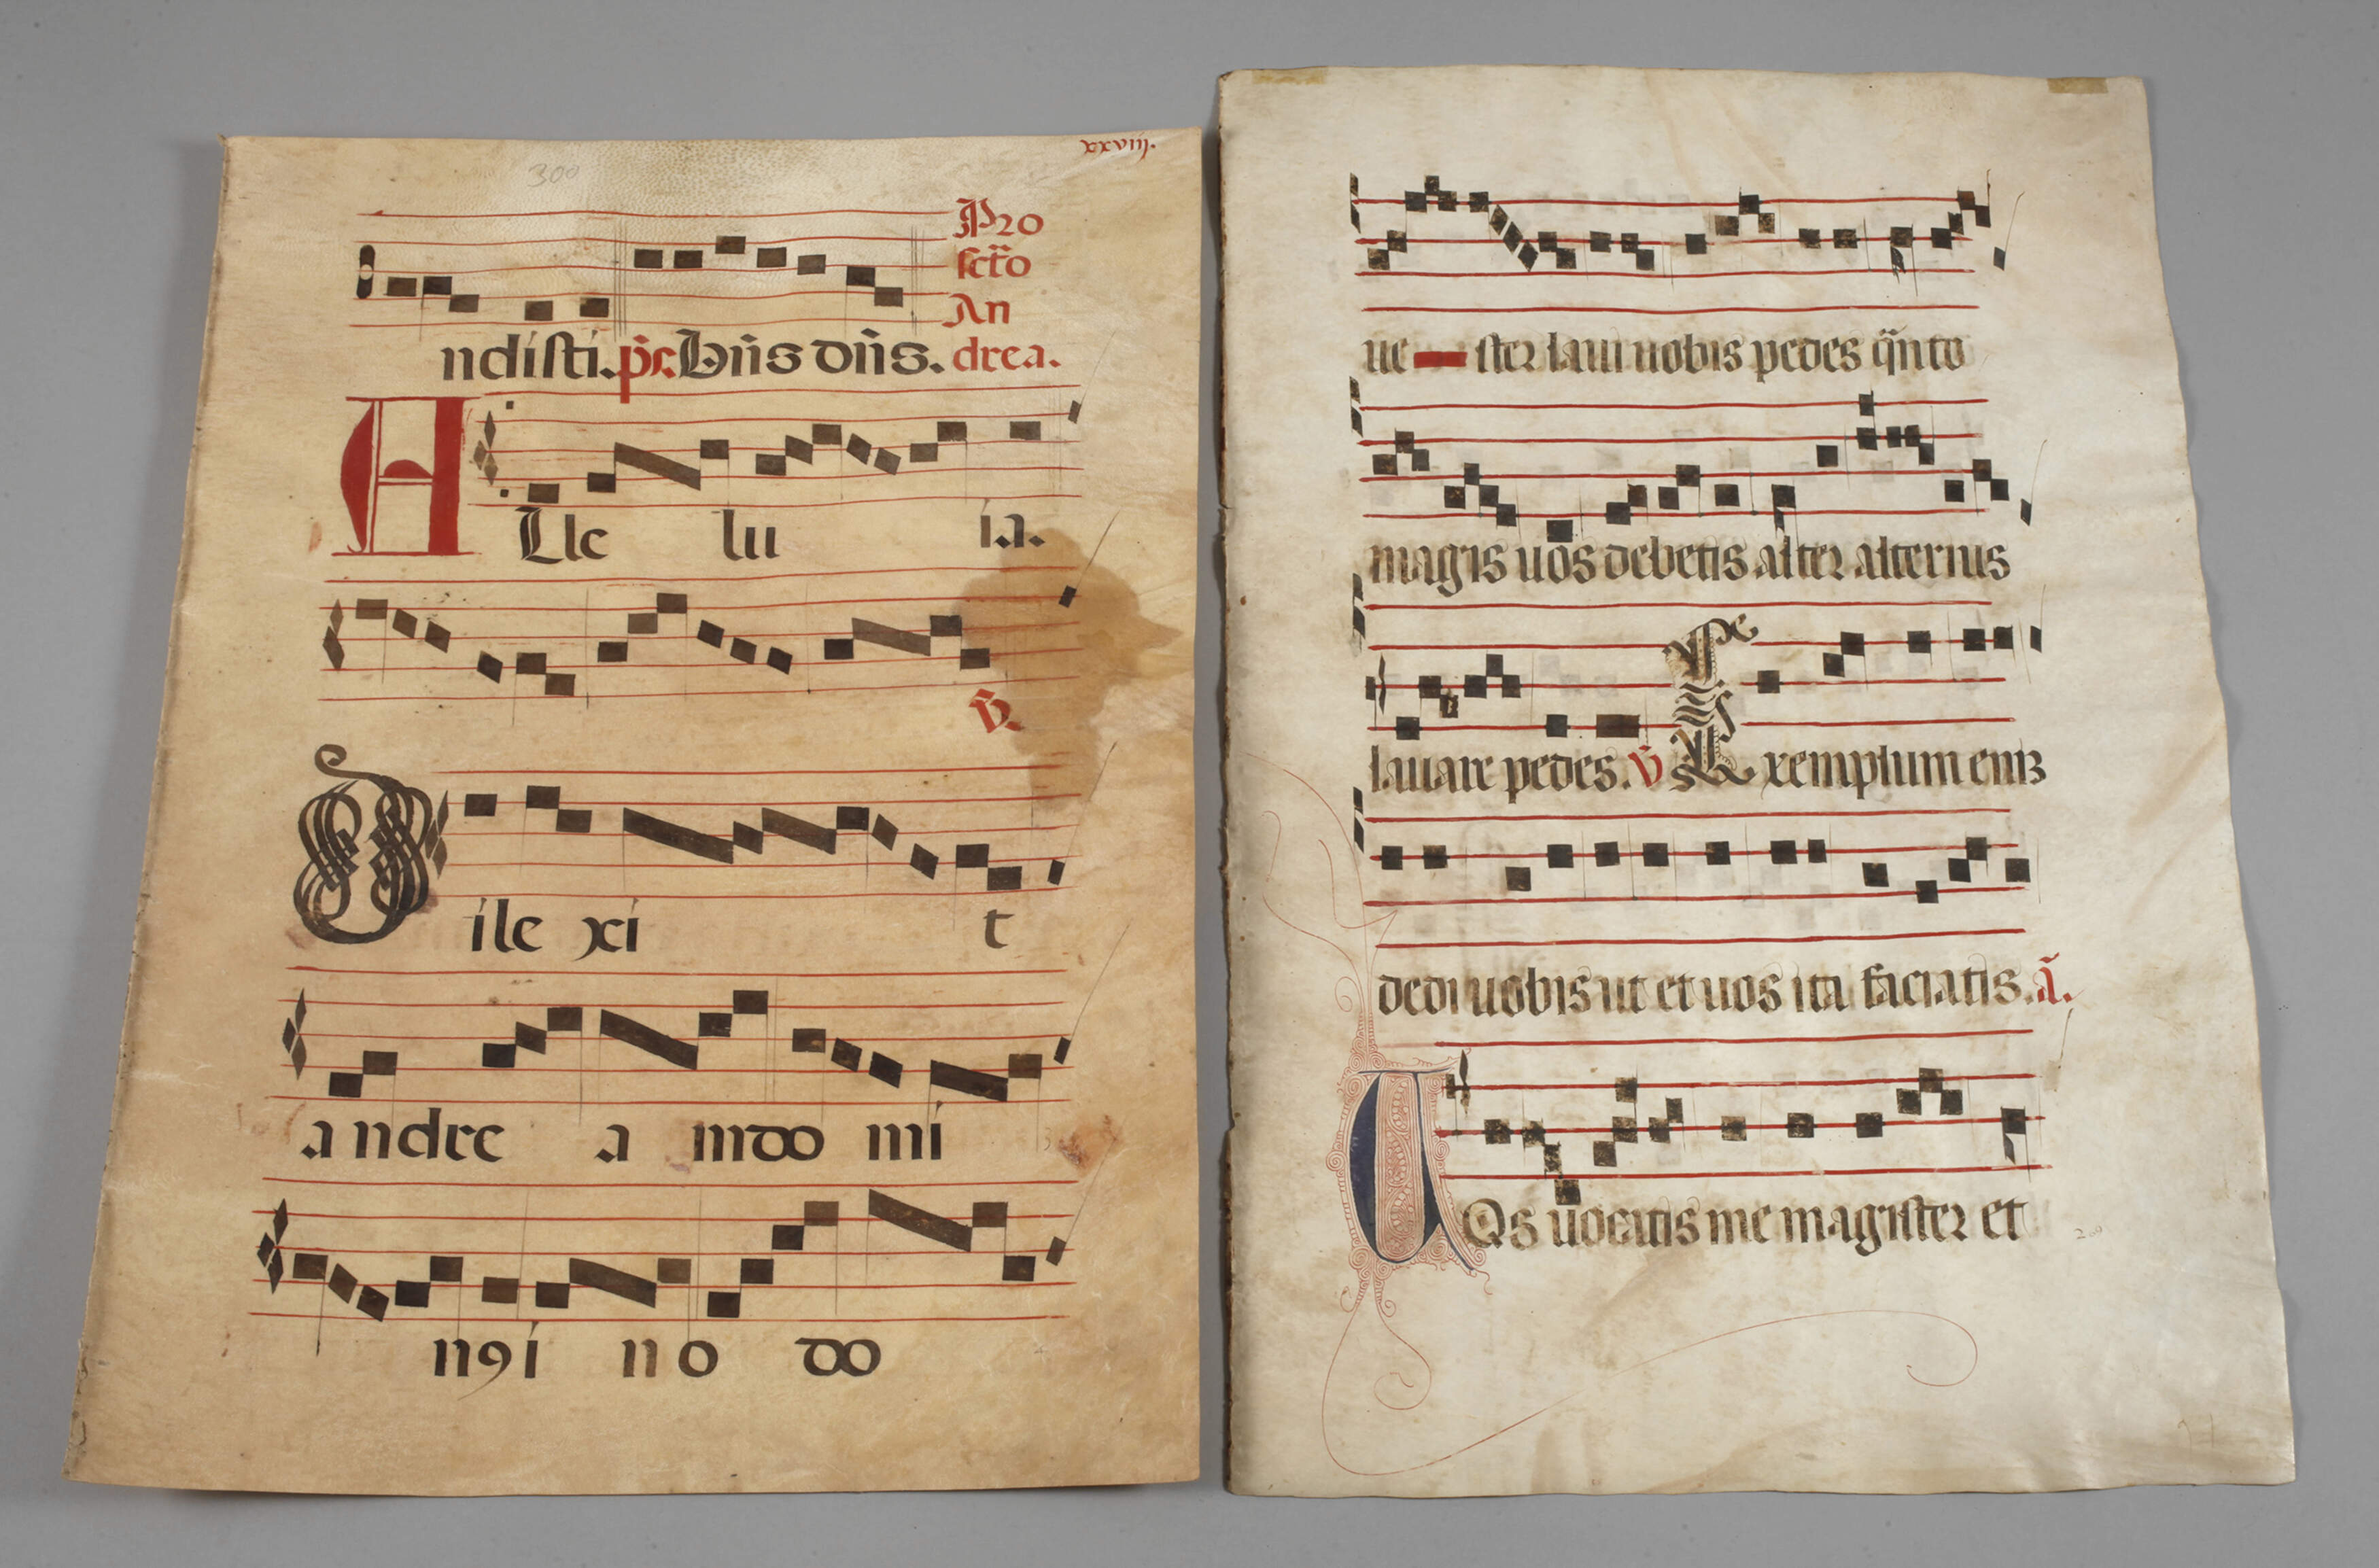 xxviij.
300
Pro
sct̄o
An
ndisti. p̄s. Dn̄s dn̄s. drea.
A
Lle lu ia.
V̄
D
ile xi t
andre a mdo mi
n9i no do
ue ster laui uobis pedes q̄nto
magis uos debetis alter alterius
lauare pedes. V̄ Exemplum eniʒ
dedi uobis ut et uos ita faciatis. ā.
UOs uocatis me magister et